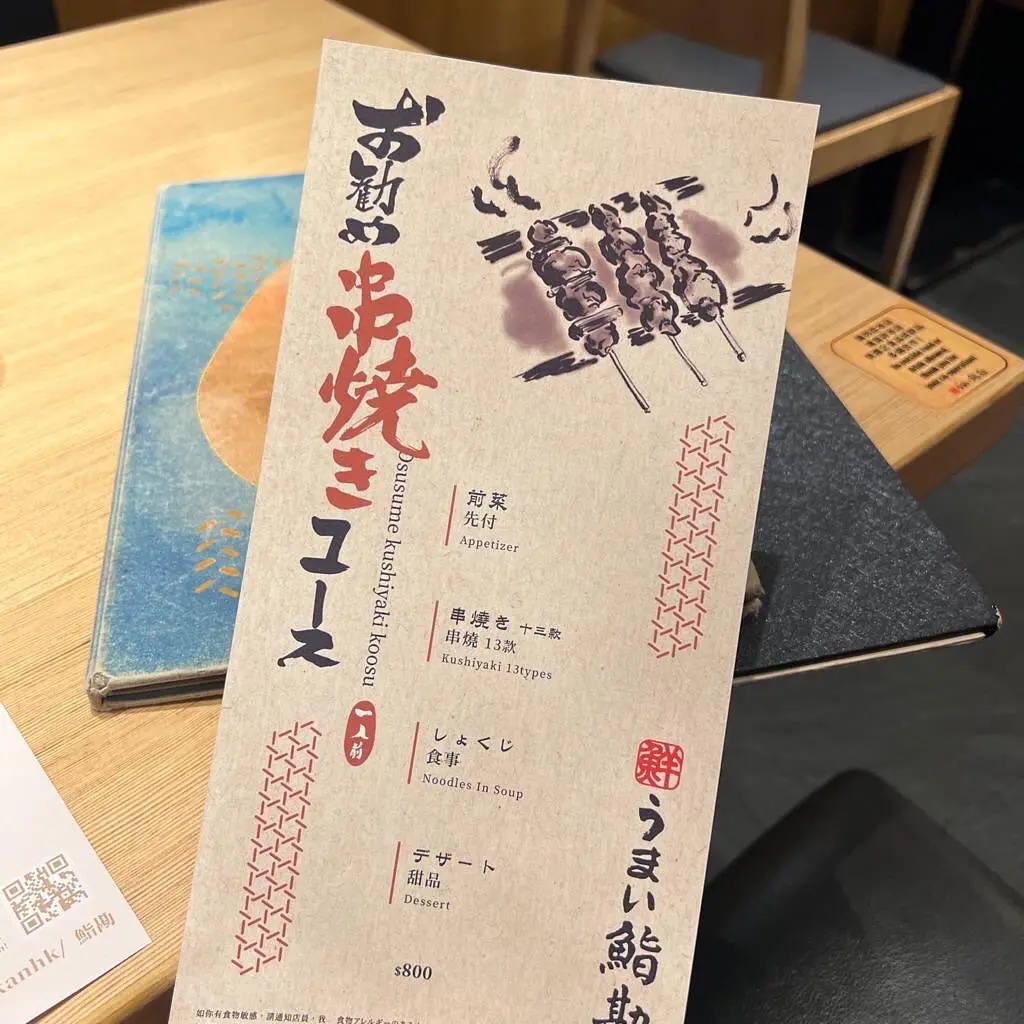 お勧め串焼きコース
Osusume kushiyaki koosu
一人前
前菜
先付
Appetizer
串焼き 十三款
串燒 13款
Kushiyaki 13types
しょくじ
食事
Noodles In Soup
デザート
甜品
Dessert
$800
鮮
うまい鮨勘
如你有食物敏感，請通知店員，我
食物アレルギーのある
anhk/ 鮨勘